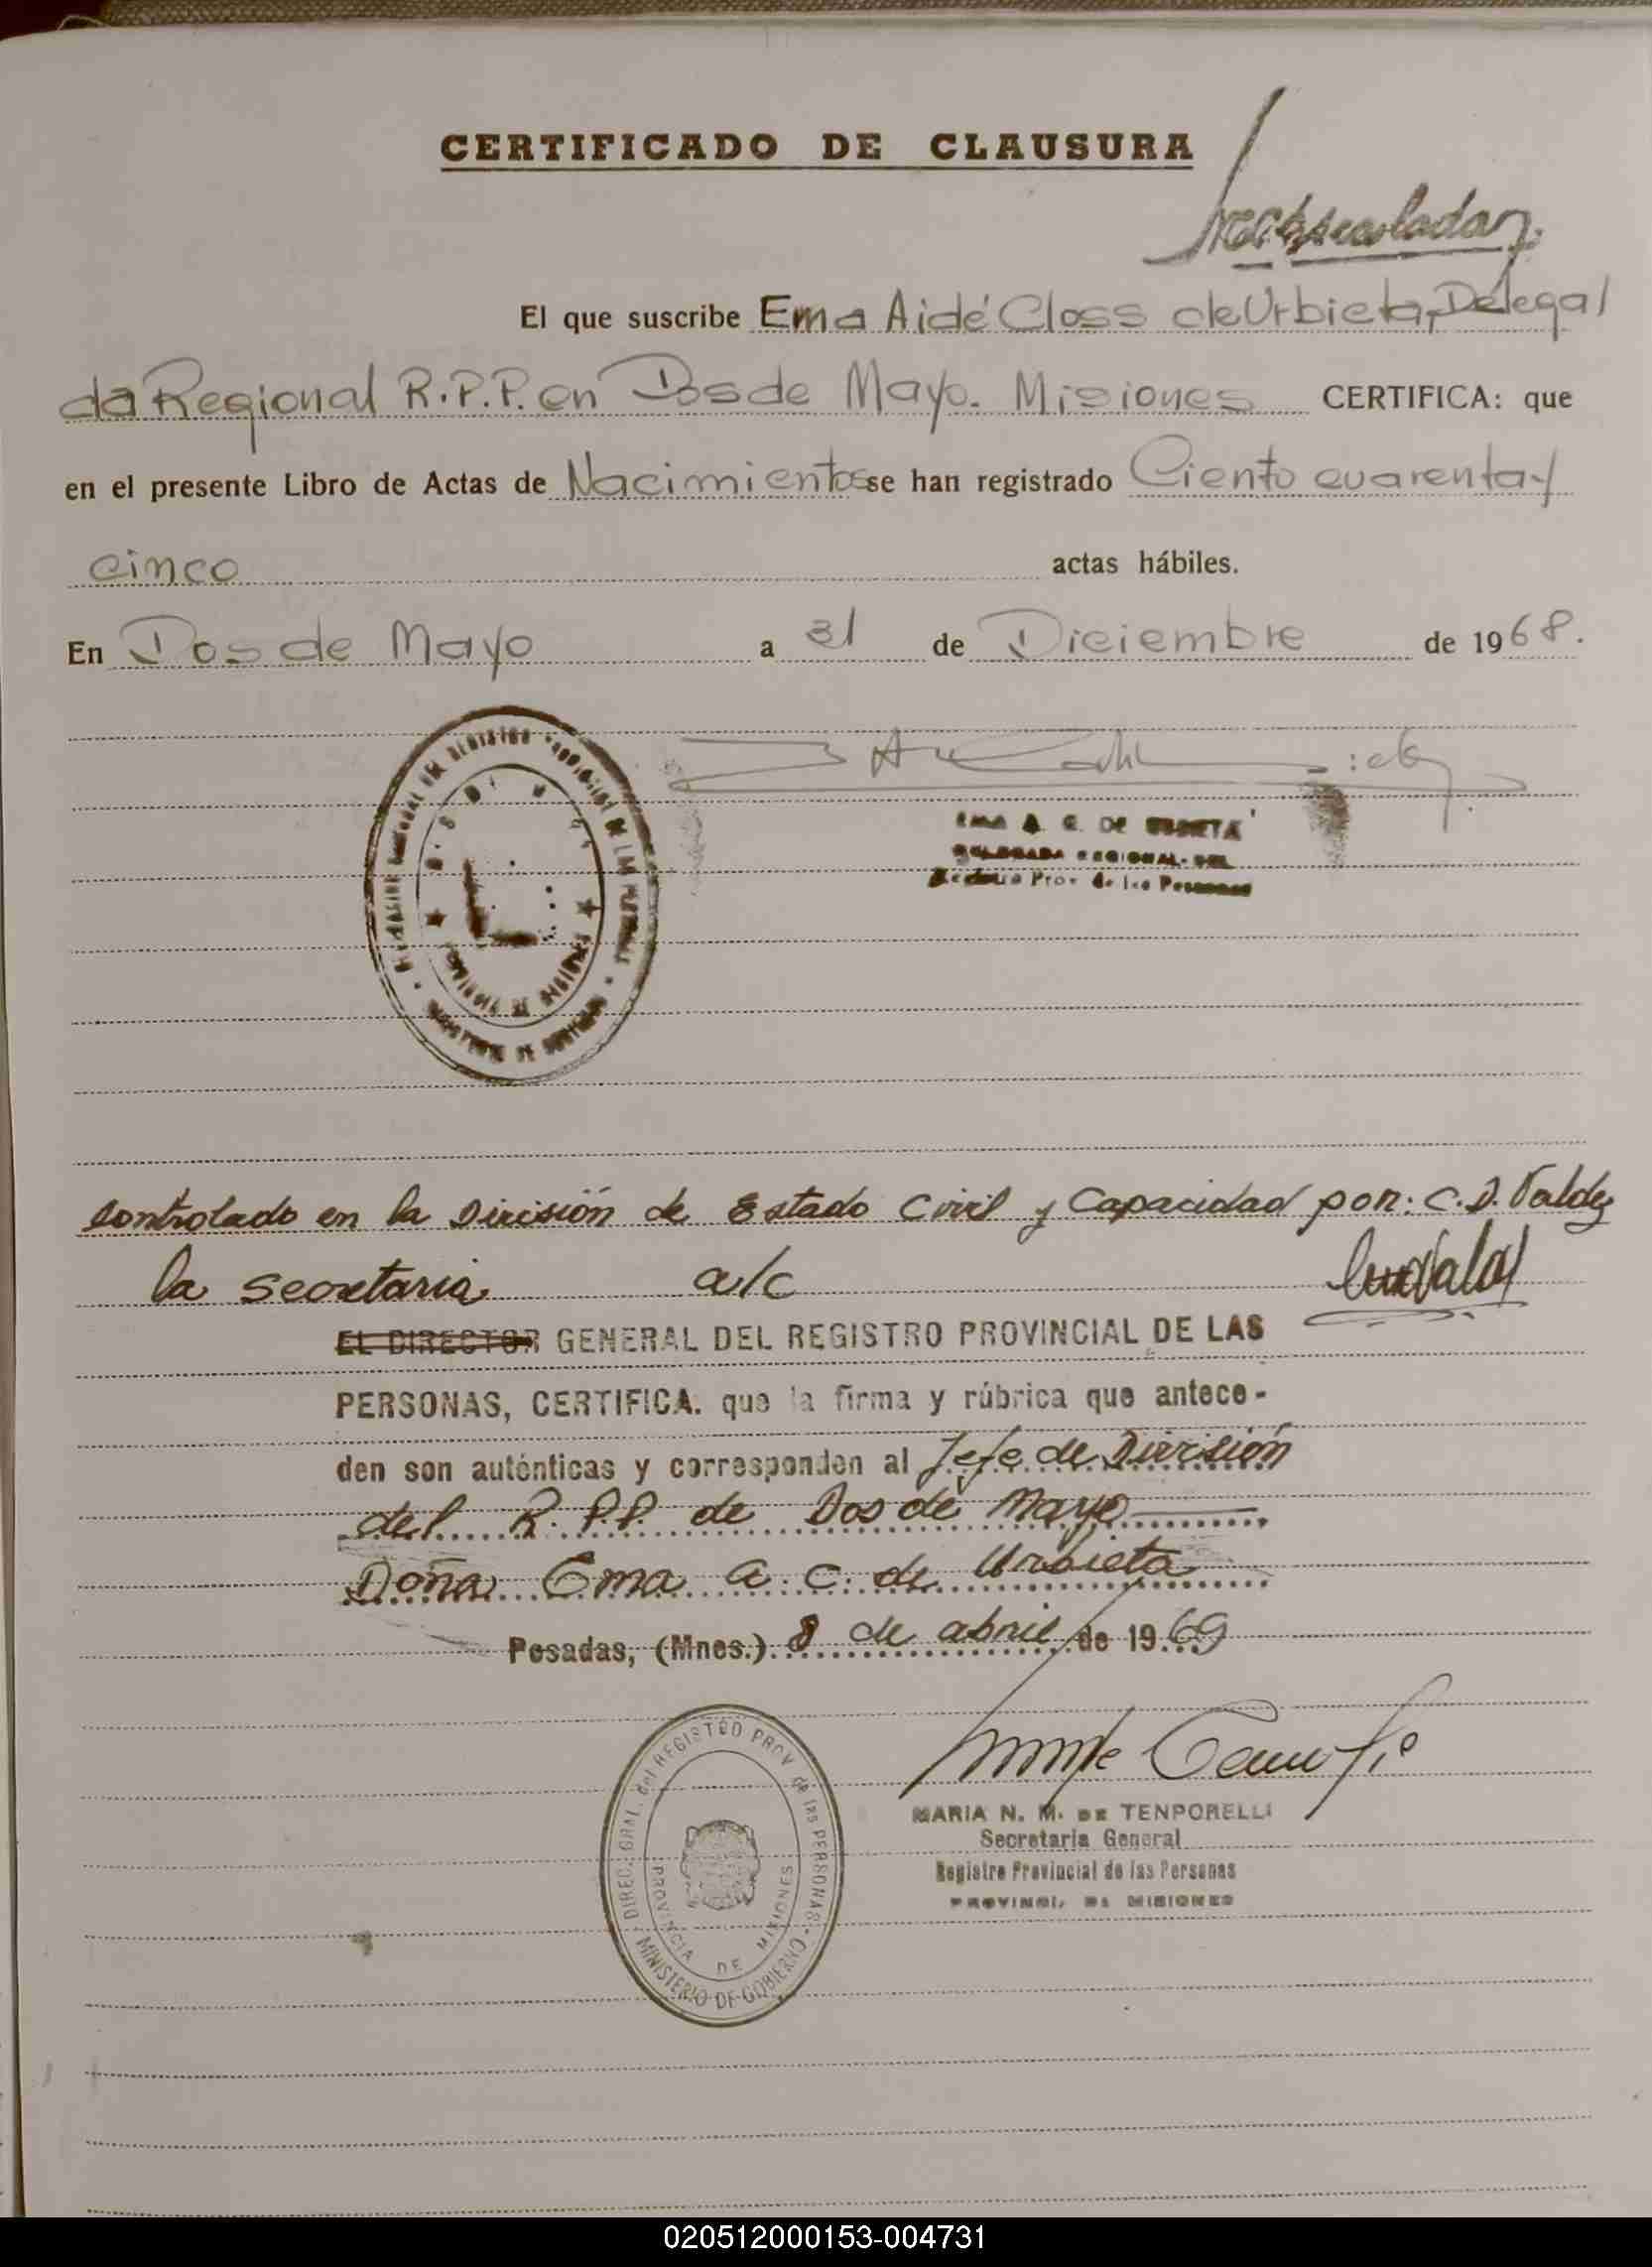 CERTIFICADO DE CLAUSURA
El que suscribe Ema Aidé Closs de Urbieta, Delega
da Regional R.P.P. en Dos de Mayo. Misiones CERTIFICA: que
en el presente Libro de Actas de Nacimientos se han registrado Ciento cuarenta y
cinco actas hábiles.
En Dos de Mayo a 31 de Diciembre de 1968.
EMA A. C. DE URBIETA
DELEGADA REGIONAL DEL
Registro Prov. de las Personas
PROVINCIA DE MISIONES
MINISTERIO DE GOBIERNO
Controlado en la División de Estado Civil y Capacidad por: C. D. Valdez
la secretaria a/c
EL DIRECTOR GENERAL DEL REGISTRO PROVINCIAL DE LAS
PERSONAS, CERTIFICA. que la firma y rúbrica que antece-
den son auténticas y corresponden al Jefe de División
del R.P.P. de Dos de Mayo
Doña Ema A. C. de Urbieta
Posadas, (Mnes.) 8 de abril de 1969
DIREC. GRAL. del REGISTRO PROV. de las PERSONAS
MINISTERIO DE GOBIERNO
PROVINCIA DE MISIONES
MARIA N. M. DE TENPORELLI
Secretaria General
Registro Provincial de las Personas
PROVINCI. DE MISIONES
020512000153-004731